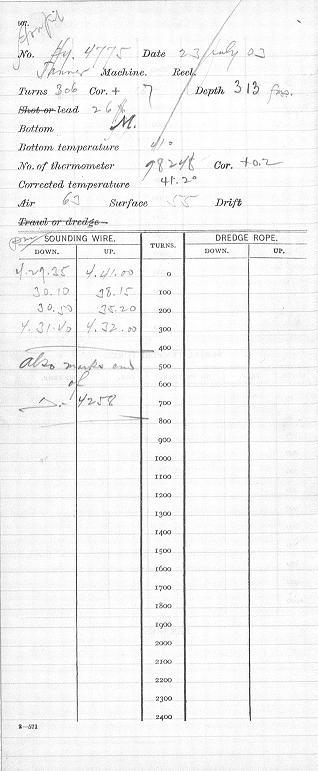 No. Hy. 4775 Date 23 July 03
Tanner Machine. Reel.
Turns 306 Cor. + 7 Depth 313 fms.
Shot or lead 26 lb
Bottom M.
Bottom temperature 41°
No. of thermometer 98248 Cor. +0.2
Corrected temperature 41.20
Air 63 Surface 55 Drift
Trawl or dredge
SOUNDING WIRE. TURNS. DREDGE ROPE.
DOWN. UP. DOWN. UP.
4.29.35 4.41.00 0
30.10 38.15 100
30.50 35.20 200
4.31.40 4.32.00 300
400
also marks end 500
of 600
4258 700
800
900
1000
1100
1200
1300
1400
1500
1600
1700
1800
1900
2000
2100
2200
2300
2400
2—521